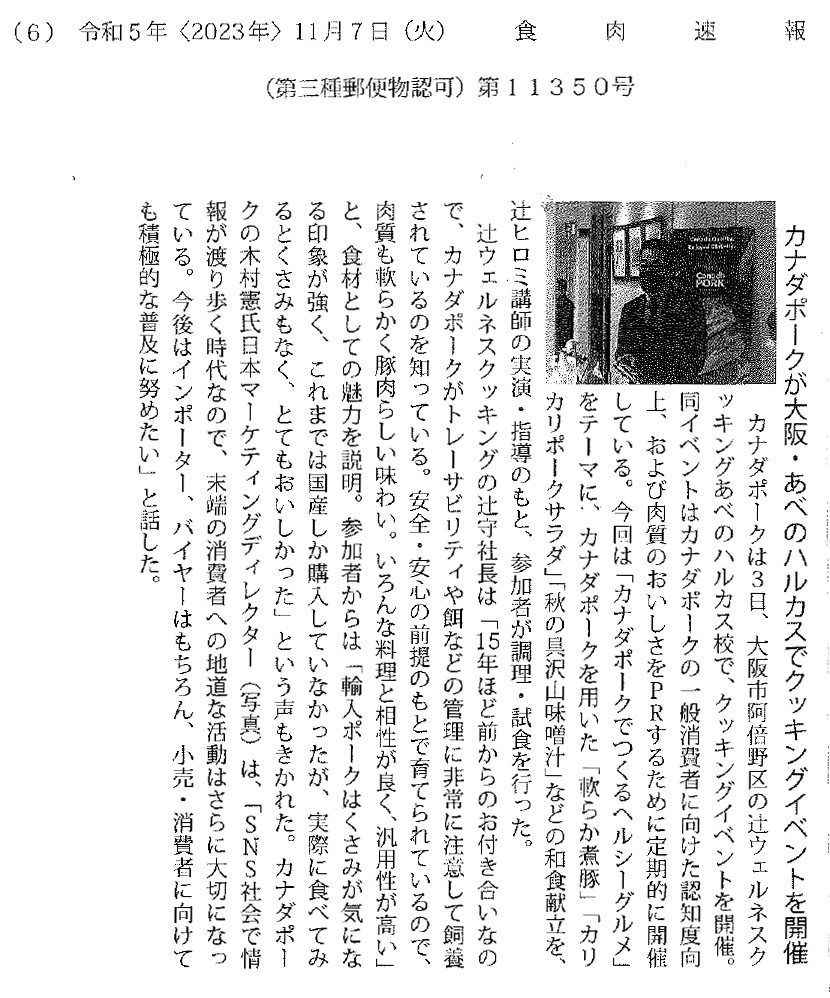 (6) 令和5年〈2023年〉11月7日（火） 食肉速報
（第三種郵便物認可）第11350号
カナダポークが大阪・あべのハルカスでクッキングイベントを開催
カナダポークは3日、大阪市阿倍野区の辻ウェルネスク
ッキングあべのハルカス校で、クッキングイベントを開催。
同イベントはカナダポークの一般消費者に向けた認知度向
上、および肉質のおいしさをPRするために定期的に開催
している。今回は「カナダポークでつくるヘルシーグルメ」
をテーマに、カナダポークを用いた「軟らか煮豚」「カリ
カリポークサラダ」「秋の具沢山味噌汁」などの和食献立を、
辻ヒロミ講師の実演・指導のもと、参加者が調理・試食を行った。
辻ウェルネスクッキングの辻守社長は「15年ほど前からのお付き合いなの
で、カナダポークがトレーサビリティや餌などの管理に非常に注意して飼養
されているのを知っている。安全・安心の前提のもとで育てられているので、
肉質も軟らかく豚肉らしい味わい。いろんな料理と相性が良く、汎用性が高い」
と、食材としての魅力を説明。参加者からは「輸入ポークはくさみが気にな
る印象が強く、これまでは国産しか購入していなかったが、実際に食べてみ
るとくさみもなく、とてもおいしかった」という声もきかれた。カナダポー
クの木村憲氏日本マーケティングディレクター（写真）は、「SNS社会で情
報が渡り歩く時代なので、末端の消費者への地道な活動はさらに大切になっ
ている。今後はインポーター、バイヤーはもちろん、小売・消費者に向けて
も積極的な普及に努めたい」と話した。
PORK